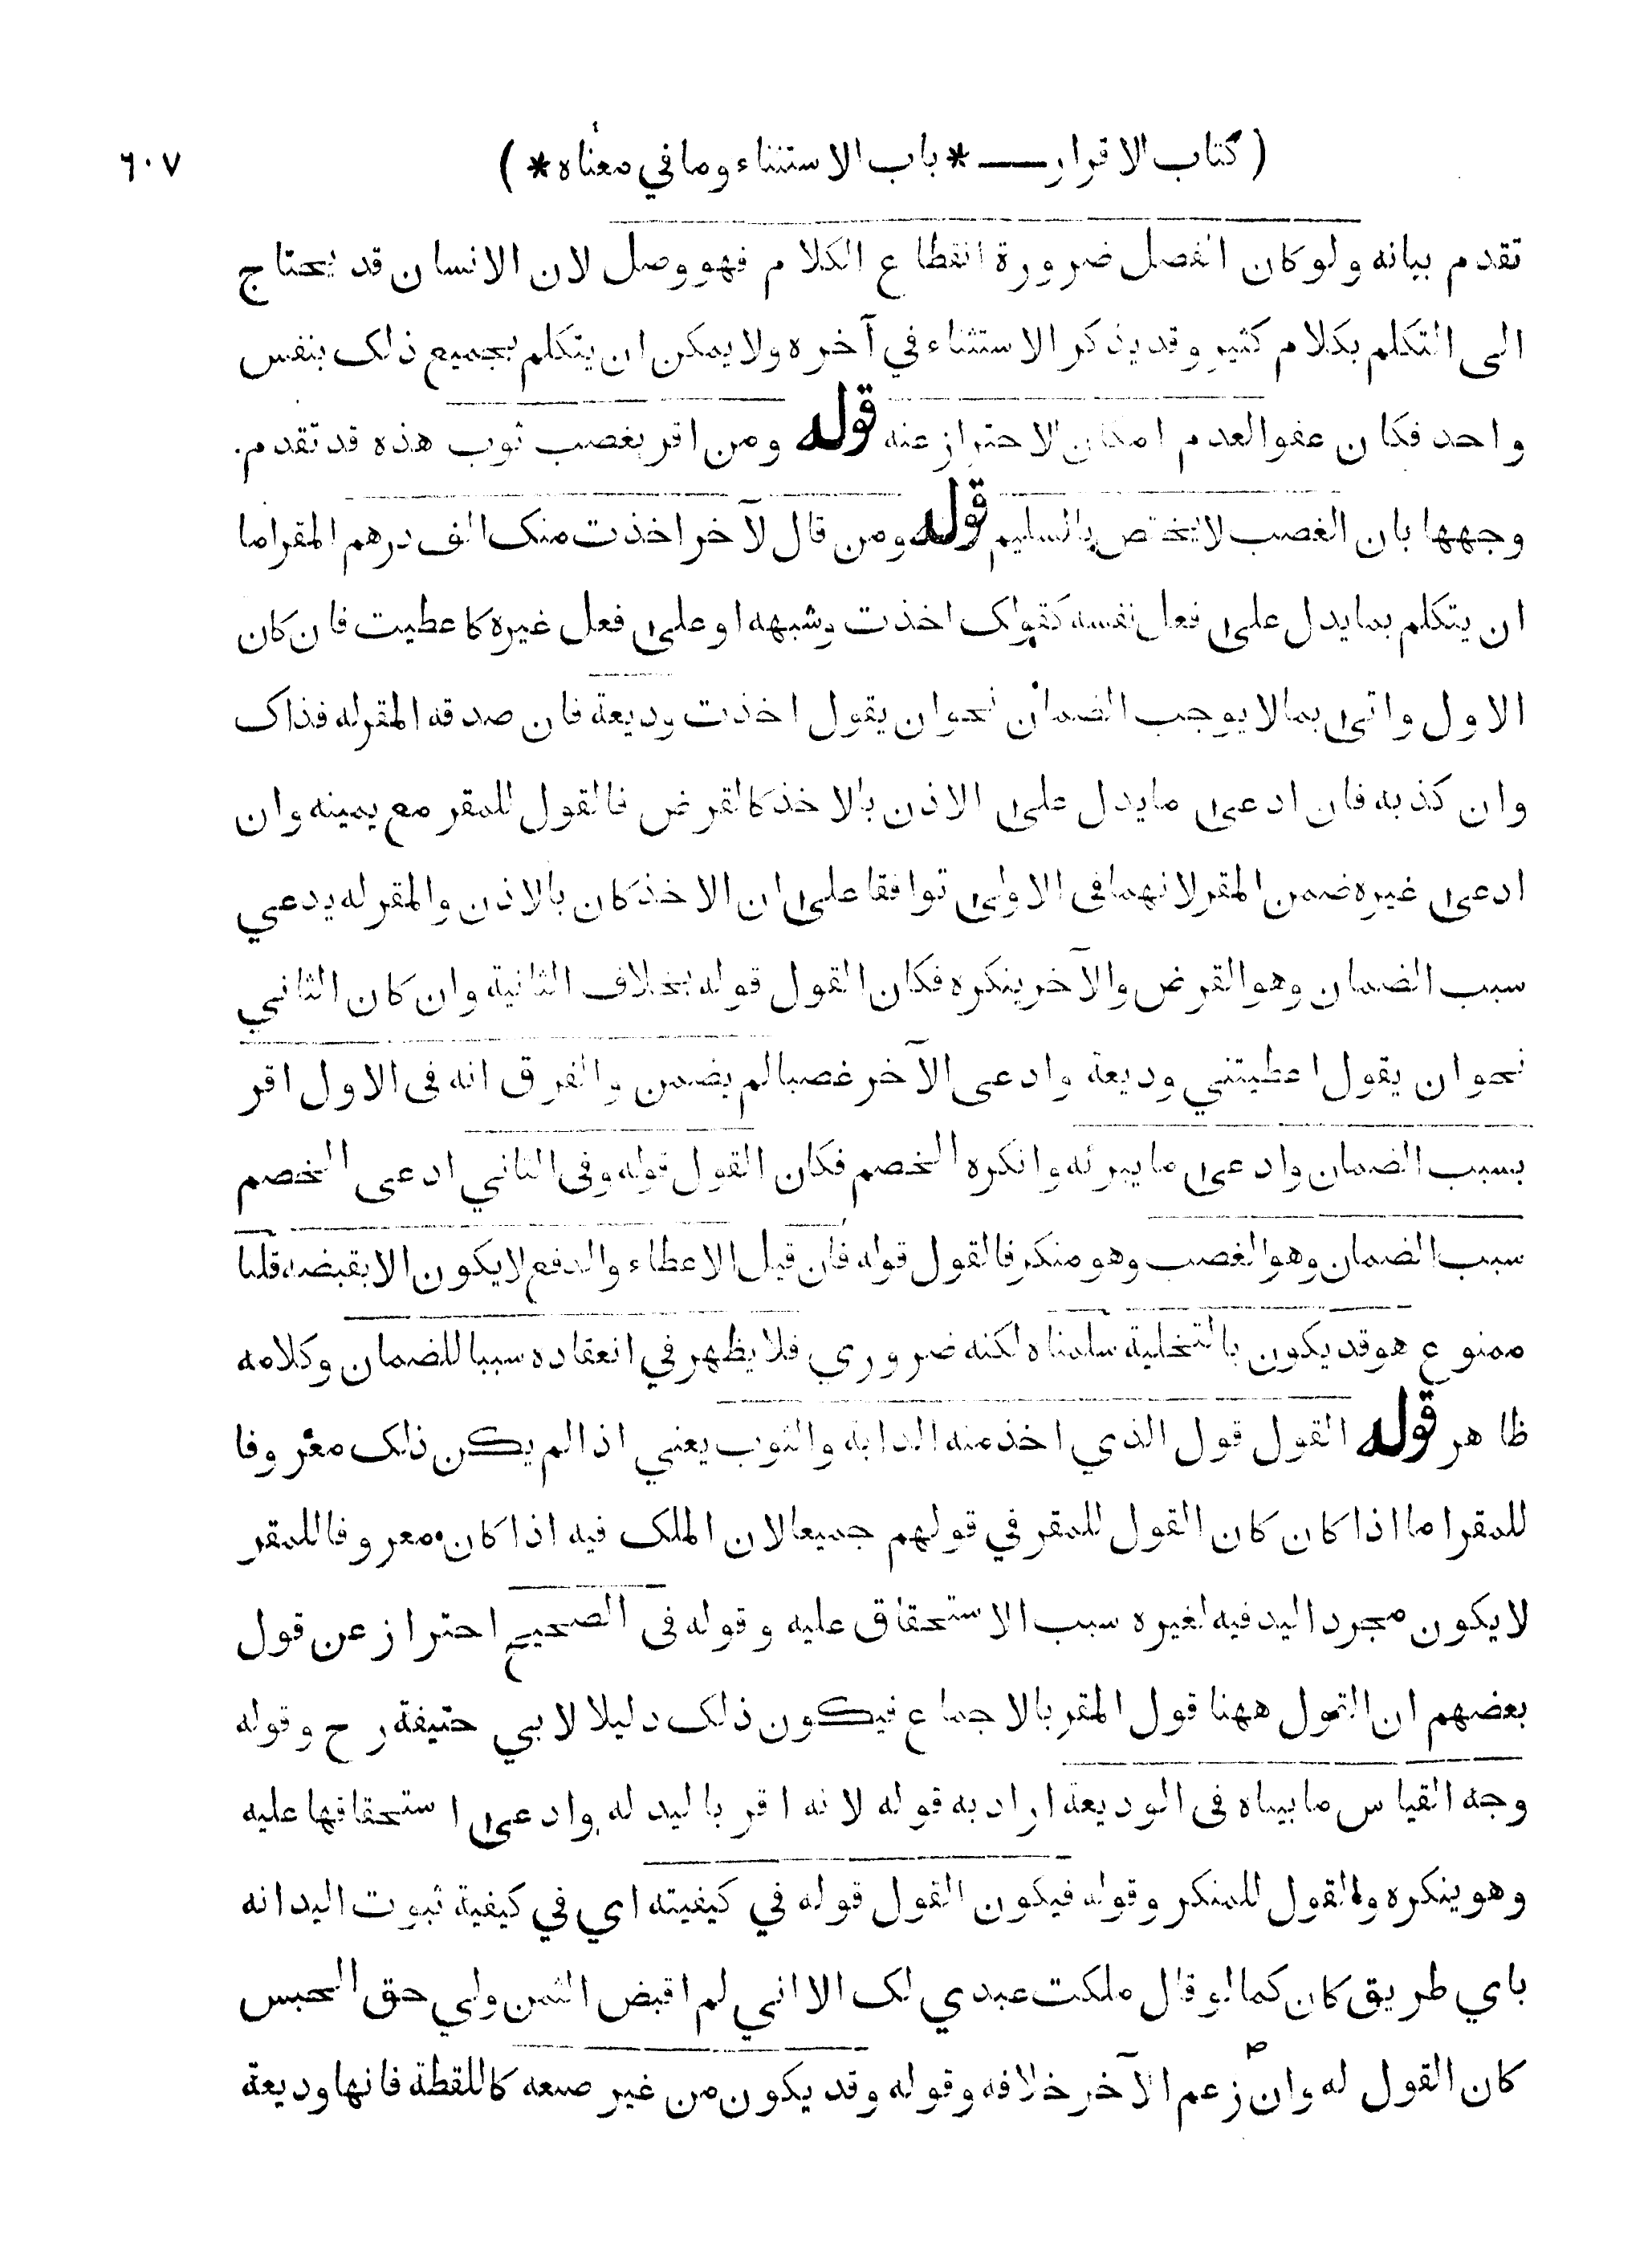 (كتاب الاقرار — *باب الاستثناء وما في معناه*) ٦٠٧
تقدم بيانه ولو كان انفصل ضرورة انقطاع الكلام فهو وصل لان الانسان قد يحتاج
الى التكلم بكلام كثير وقد يذكر الاستثناء في آخره ولا يمكن ان يتكلم بجميع ذلك بنفس
واحد فكان عفوا لعدم امكان الاحتراز عنه قوله ومن اقر بغصب ثوب هذه قد تقدم
وجهها بان الغصب لا يختص بالسليم قوله ومن قال لآخر اخذت منك الف درهم المقر اما
ان يتكلم بما يدل على فعل نفسه كقولك اخذت وشبهه او على فعل غيره كاعطيت فان كان
الاول واتى بما لا يوجب الضمان نحو ان يقول اخذت وديعة فان صدقه المقر له فذاك
وان كذبه فان ادعى ما يدل على الاذن بالاخذ كالقرض فالقول للمقر مع يمينه وان
ادعى غيره ضمن المقر لانهما فى الاولى توافقا على ان الاخذ كان بالاذن والمقر له يدعي
سبب الضمان وهو القرض والآخر ينكره فكان القول قوله بخلاف الثانية وان كان الثاني
نحو ان يقول اعطيتني وديعة وادعى الآخر غصبا لم يضمن والفرق انه فى الاول اقر
بسبب الضمان وادعى ما يبرئه وانكره الخصم فكان القول قوله وفى الثاني ادعى الخصم
سبب الضمان وهو الغصب وهو منكر فالقول قوله فان قيل الاعطاء والدفع لا يكون الا بقبضه قلنا
ممنوع هو قد يكون بالتخلية سلمناه لكنه ضروري فلا يظهر في انعقاده سببا للضمان وكلامه
ظاهر قوله القول قول الذي اخذ منه الدابة والثوب يعني اذا لم يكن ذلك معروفا
للمقر اما اذا كان كان القول للمقر في قولهم جميعا لان الملك فيه اذا كان معروفا للمقر
لا يكون مجرد اليد فيه لغيره سبب الاستحقاق عليه وقوله فى الصحيح احتراز عن قول
بعضهم ان القول ههنا قول المقر بالاجماع فيكون ذلك دليلا لابي حنيفة رح وقوله
وجه القياس ما بيناه فى الوديعة اراد به قوله لانه اقر باليد له وادعى استحقاقها عليه
وهو ينكره والقول للمنكر وقوله فيكون القول قوله في كيفيته اي في كيفية ثبوت اليد انه
باي طريق كان كما لو قال ملكت عبدي لك الا اني لم اقبض الثمن ولي حق الحبس
كان القول له وان زعم الآخر خلافه وقوله وقد يكون من غير صنعه كاللقطة فانها وديعة